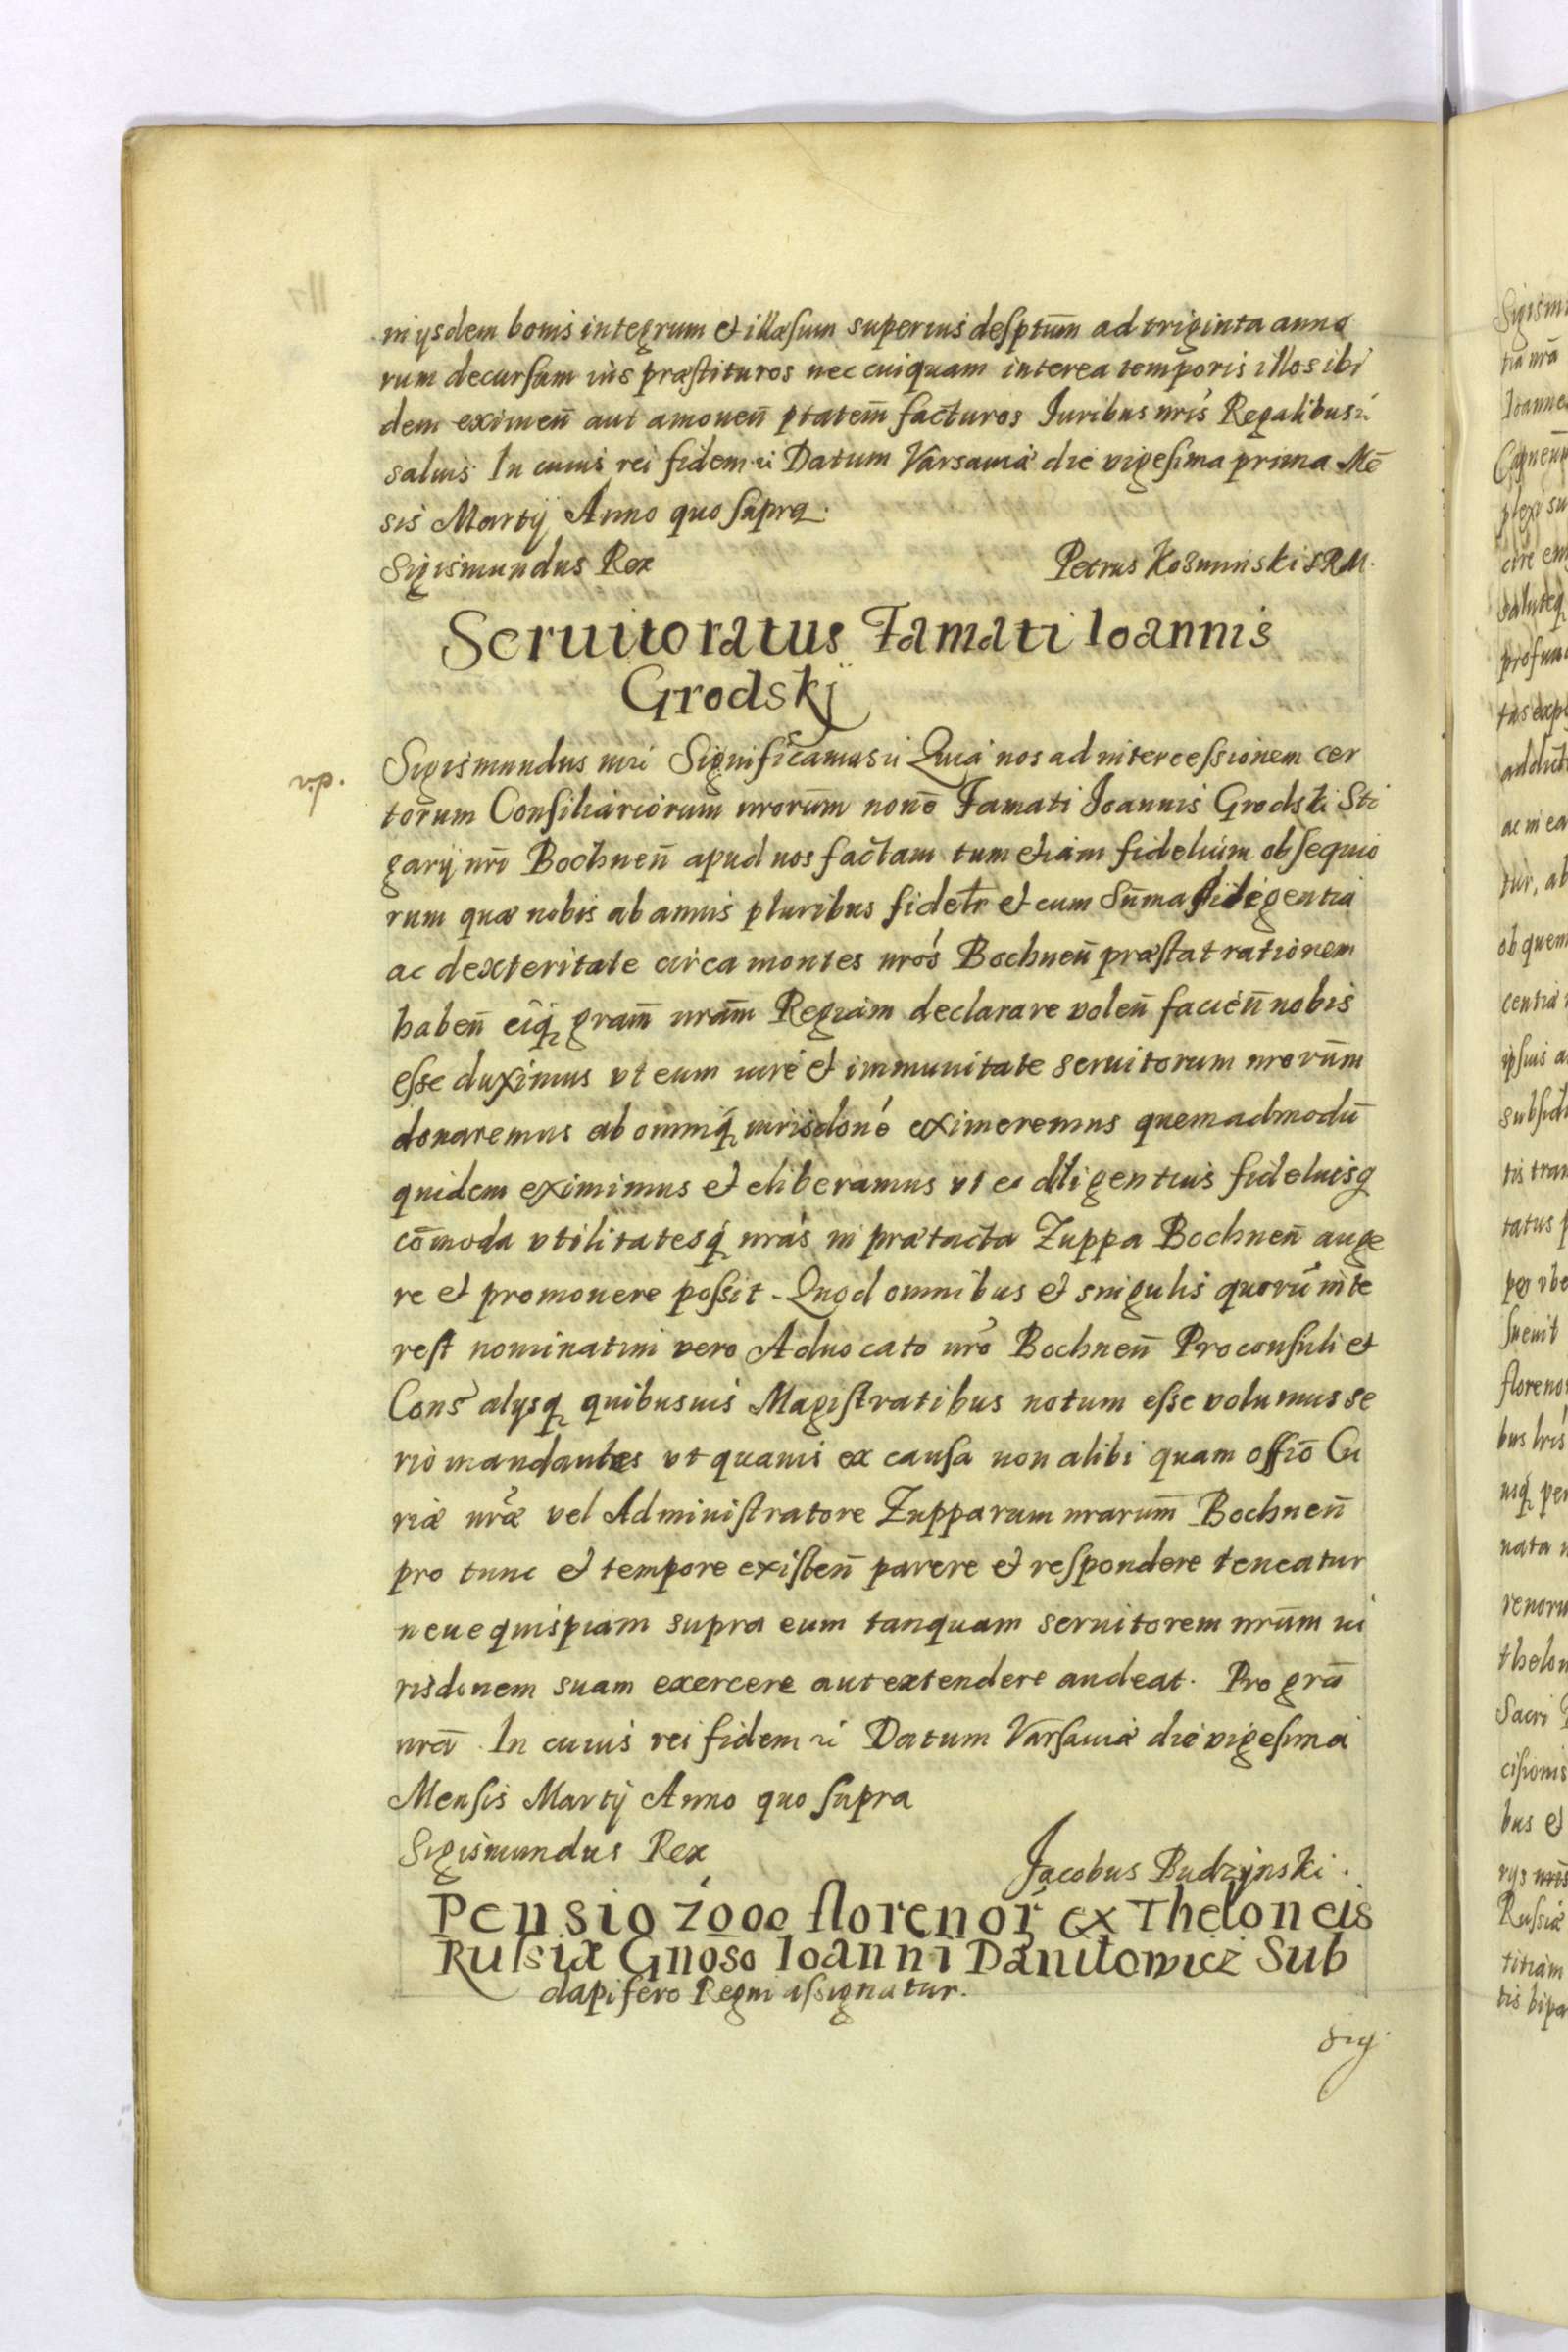 in ijsdem bonis integrum et illæsum superius desptum̄ ad triginta anno
rum decursum ius præstituros nec cuiquam interea temporis illos ibi
dem eximen̄ aut amouen̄ ptatem̄ facturos Iuribus nris Regalibus
saluis In cuius rei fidem Datum Varsauiæ die vigesima prima Mē
sis Martij Anno quo supra.
Sigismundus Rex Petrus Kozminski SRM.
Seruitoratus Famati Ioannis
Grodskij
Sigismundus Significamus Quia nos ad intercessionem cer
torum Consiliariorum nrorum̄ noīe Famati Ioannis Grodski
garij nri Bochnen̄ apud nos factam tum etiam fidelium obsequio
rum quæ nobis ab annis pluribus fidelr et cum sum̄a diligentia
ac dexteritate circa montes nros Bochnen̄ præstat rationem
haben̄ eiq gram̄ nram̄ Regiam declarare volen̄ facien̄ nobis
esse duximus vt eum iure et immunitate seruitorum nrorum̄
donaremus ab omniq iurisdone eximeremus quemadmodū
quidem eximimus et eliberamus vt eo diligentius fideliusq
cōmoda vtilitatesq nras in prætacta Zuppa Bochnen̄ auge
re et promouere possit. Quod omnibus et singulis quorū inte
rest nominatim vero Aduocato nro Bochnen̄ Proconsuli et
Cons alijsq quibusuis Magistratibus notum esse volumus se
rio mandantes vt quauis ex causa non alibi quam offio Cu
riæ nræ vel Administratore Zupparum nrarum̄ Bochnen̄
pro tunc et tempore existen̄ parere et respondere teneatur
neue quispiam supra eum tanquam seruitorem nrum̄ iu
risdonem suam exercere aut extendere audeat. Pro grā
nrā In cuius rei fidem Datum Varsauiæ die vigesima
Mensis Martij Anno quo supra
Sigismundus Rex Jacobus Budzynski.
Pensio 2000 florenor ex Theloneis
Russiæ Gnoso Ioanni Daniłowicz Sub
dapifero Regni assignatur.
Sig